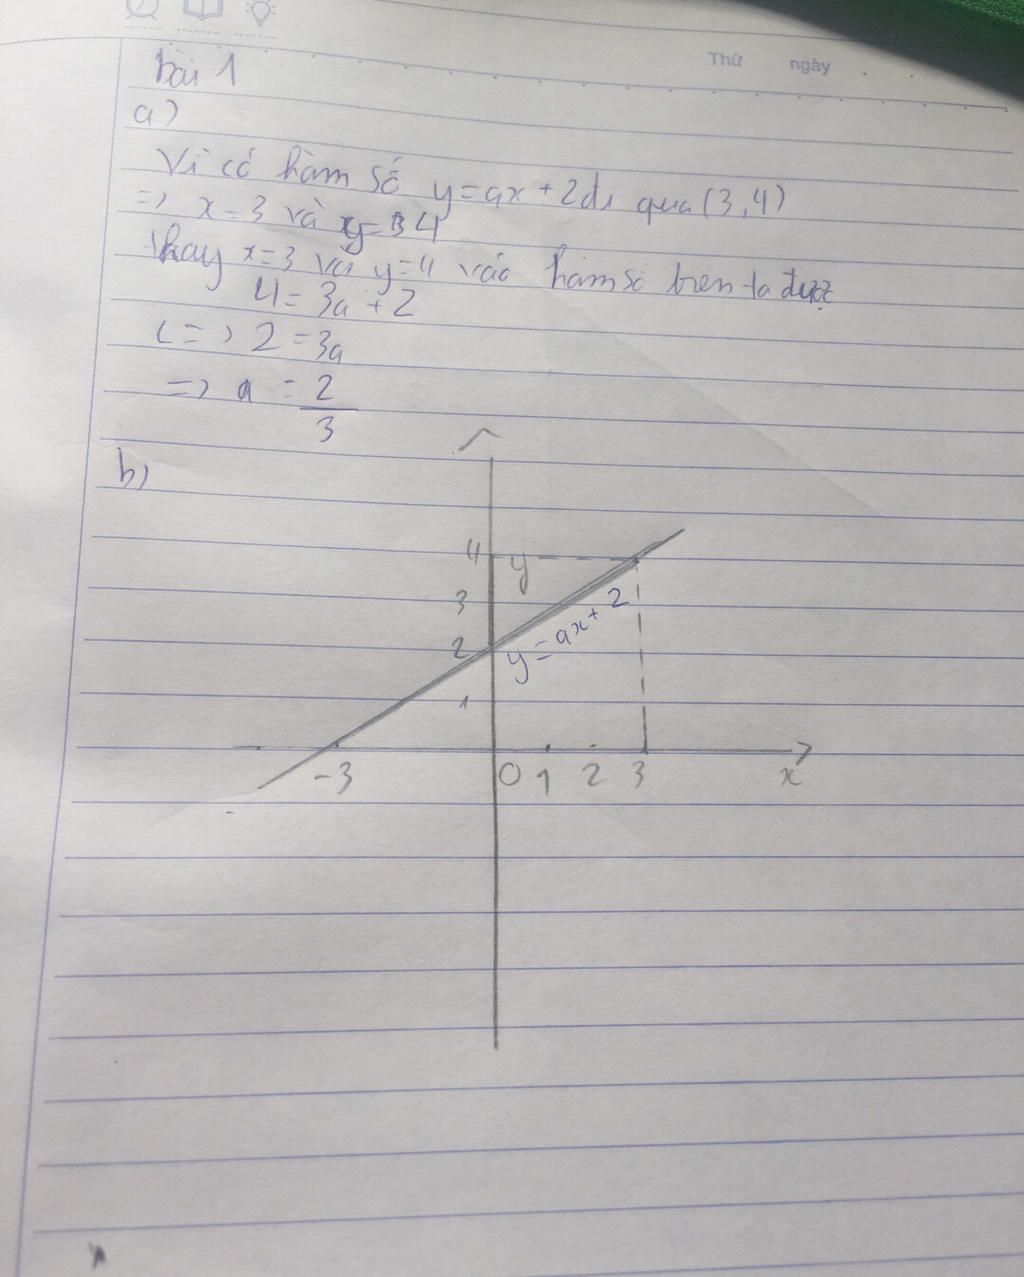 Thứ ngày
bài 1
a)
Vì có hàm số y=ax+2 đi qua (3,4)
=> x=3 và y=4
thay x=3 và y=4 vào hàm số trên ta được
4=3a+2
(=) 2=3a
=> a = 2
3
b)
4
y
3
y=ax+2
2
1
-3 0 1 2 3 x